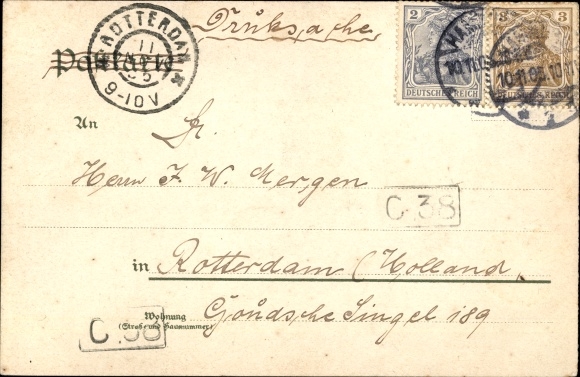 Drucksache
Postkarte
ROTTERDAM
11
9-10V
2
DEUTSCHES REICH
3
DEUTSCHES REICH
10.11.05
10.11.05.10
An
Herrn F. W. Mergen
C.38
in Rotterdam (Holland,
Wohnung
(Straße und Hausnummer)
Goudsche Singel 189
C.38